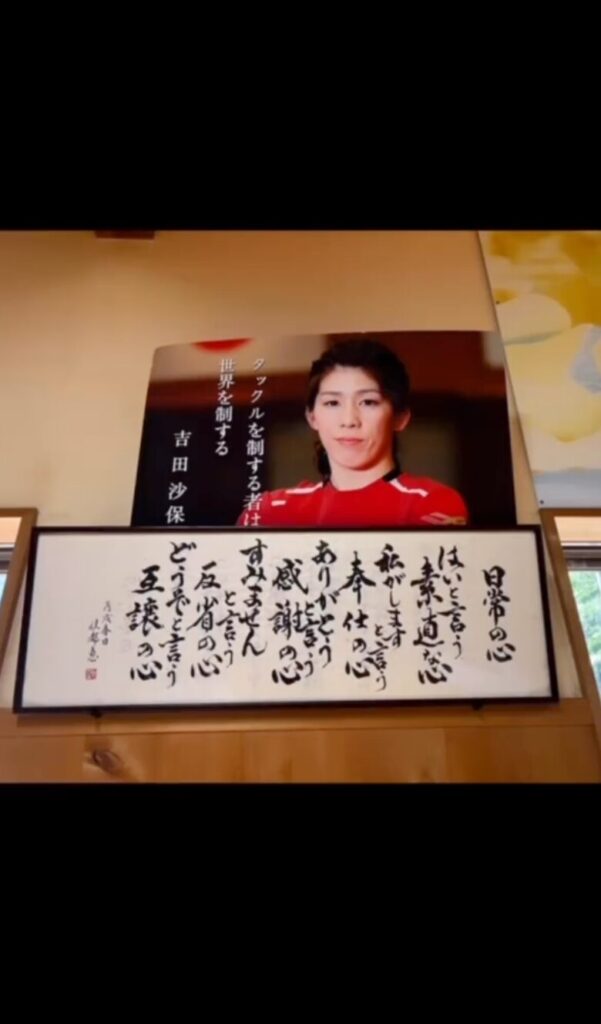 タックルを制する者は
世界を制する
吉田沙保
日常の心
はいと言う
素直な心
私がします
と言う
奉仕の心
ありがとう
と言う
感謝の心
すみません
と言う
反省の心
どうぞと言う
互譲の心